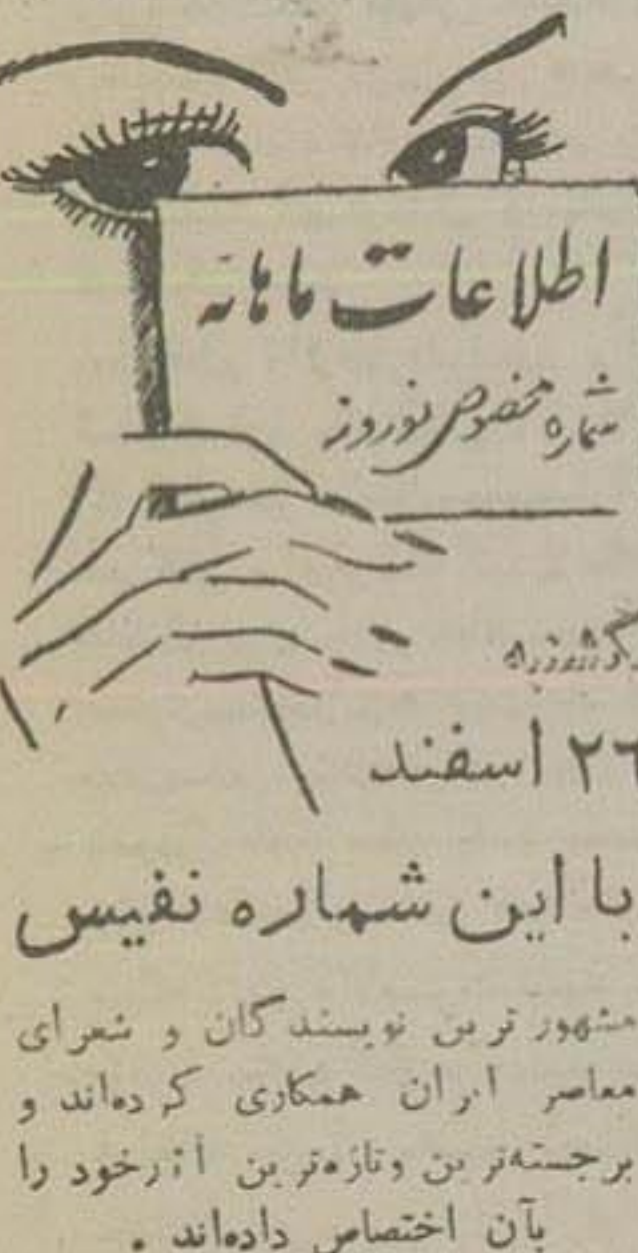 اطلاعات ماهانه
شماره مخصوص نوروز
۲۶ اسفند
با این شماره نفیس
مشهور ترین نویسندگان و شعرای
معاصر ایران همکاری کرده‌اند و
برجسته‌ترین وتازه‌ترین آثارخود را
بآن اختصاص داده‌اند .